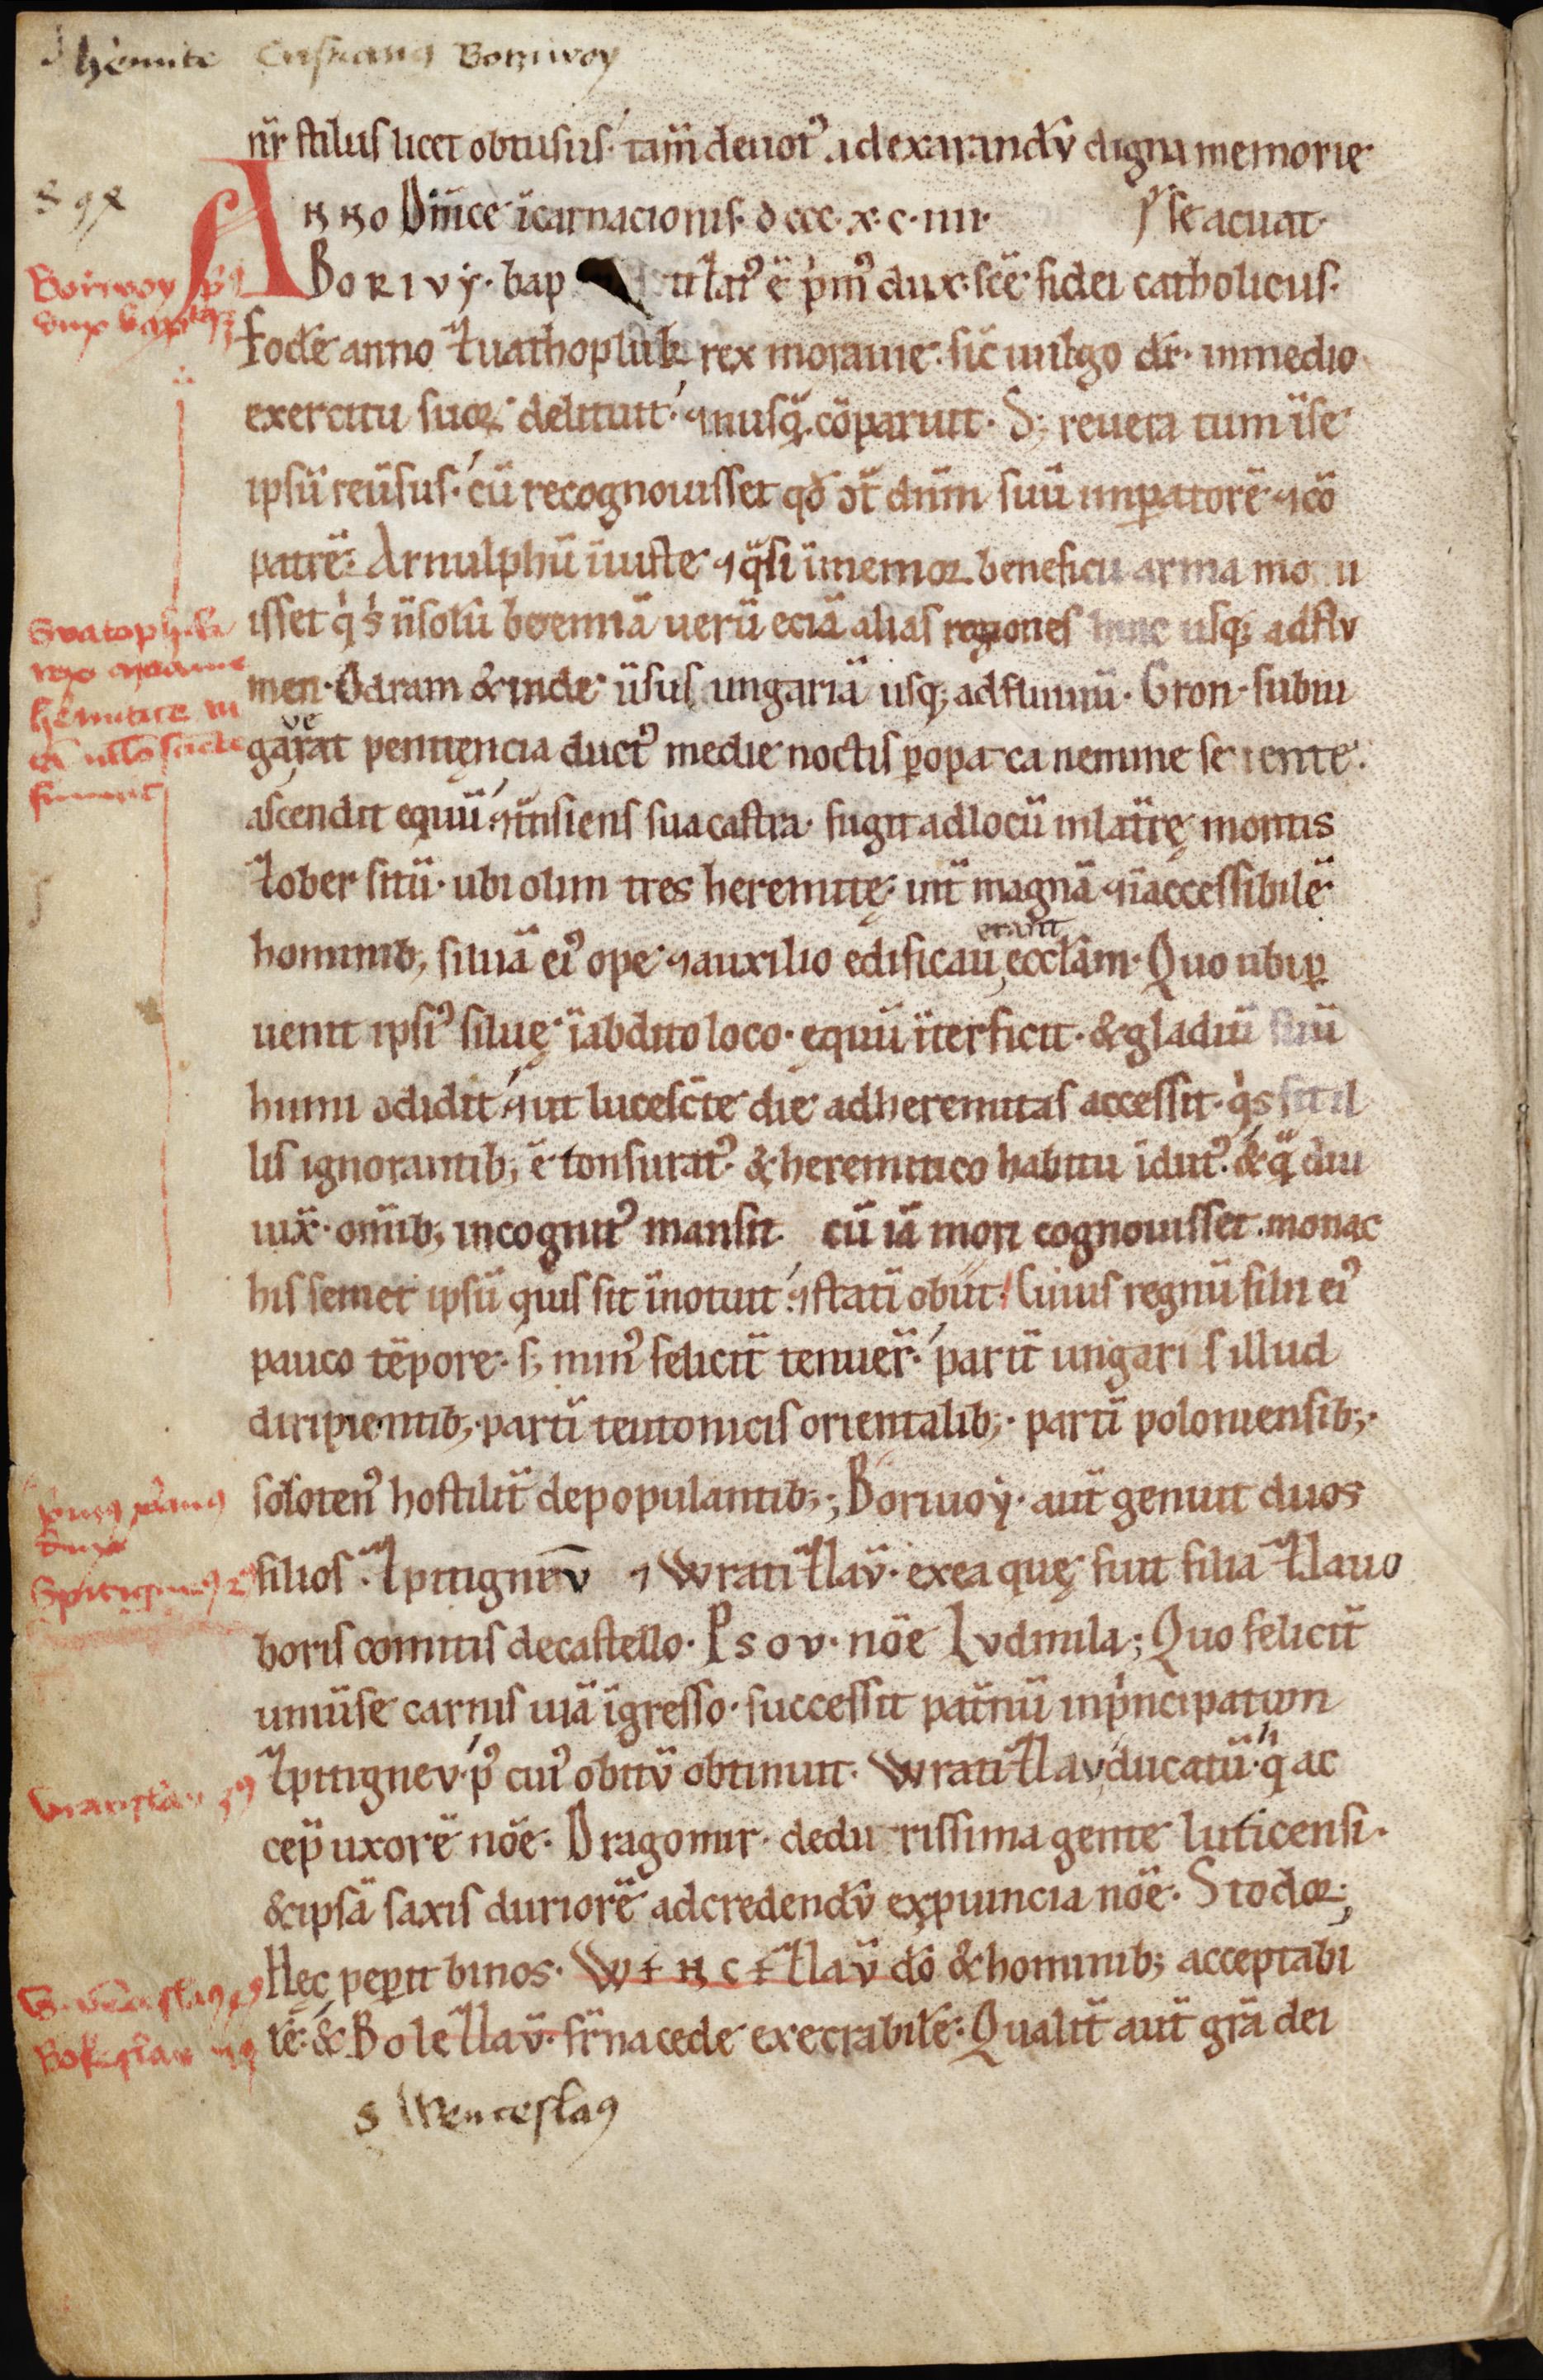 heremite Cristianus Boriwoy
nr̄ stilus licet obtusus. tam̄ deuotꝰ ad exarandv̄ digna memorie
Anno Dn̄ice īcarnacionis. dccc.x.c.iiii. se acuat.
Borivy. bap tizatꝰ ē pͥmꝰ dux. sc̄e fidei catholicus.
Eodē anno Zuathopluk rex morauie. sic̄ uulgo dr̄. in medio
exercitu suoꝝ delituit. ⁊ nusq̄. cōparuit. S; reuera tum ī se
ipsū reūsus. cū recognouisset qd̄ ↄt̄ dn̄m suū imꝑatorē ⁊ cō
patrē. Arnulphū īiuste ⁊ qͣsi īmemor beneficii arma mo u
isset qͥ sͥ n̄ solū boemiā uerū eciā alias regiones hinc usq; ad flv
men. Odram & inde ūsus ungariā usq; ad fluuiū. Gron. subiu
garat penitęncia ductꝰ medie noctis ꝑ opa ca nemine se iente.
ve
ascendit equū. ⁊ tn̄siens sua castra. fugit ad locū in latrē montis
Zober sitū. ubi olim tres heremitę. int̄ magnā ⁊ īaccessibilē
hominib; siluā eiꝰ ope ⁊ auxilio edificau ecclām. Quo ubi ꝑ
erant
uenit ipsiꝰ siluę. ī abdito loco. equū īterficit. & gladiū suū
humi ↄdidit ⁊ ut lucesc̄te die ad heremitas accessit. qͥs sit il
lis ignorantib; ē tonsuratꝰ. & heremitico habitu īdutꝰ. & qͣ diu
uix̄. om̄ib; incognitꝰ mansit. cū iā mori cognouisset. monac
his semet ipsū quis sit īnotuit. ⁊ statī obiit. Cuius regnū filii eiꝰ
pauco tēpore. s; minꝰ felicit̄ tenuer̄. parti ungaris illud
diripientib;. partī teutonicis orientalib;. partī poloniensib;.
solotenꝰ hostilit̄ depopulantib;; Boriuoy. aut̄ genuit duos
filios. Zpitignev̄ ⁊ Wratizlav̄. ex ea quę fuit filia Zlauo
boris comitis de castello. Psov. nōe Lvdmila; Quo felicit̄
uniūse carnis uiā īgresso. successit pat̄nū in pͥncipatum
Zpitignev. pꝰ cuiꝰ obitv̄ obtinuit. Wratizlav ducatū. qͥ ac
h
cep̄ uxorē nōe. Dragomir. de du rissima gente luticensi.
& ipsā saxis duriorē ad credendv̄ ex ꝓuincia nōe. Stodor;
Hęc peꝑit binos. Wencezlav̄ dō & hominib; acceptabi
lē. & Bolezlav̄. fr̄na cede execrabilē. Qualit̄ aut̄ gr̄a dei
S Wenceslaꝰ
Boriwoy pͥꝰ
dux baptizatꝰ
Svatopluk
rex morauie
heremitice
Spitigneus 2ꝰ
Vratislav 3ꝰ
S. venceslaꝰ 4ꝰ
Boleslav